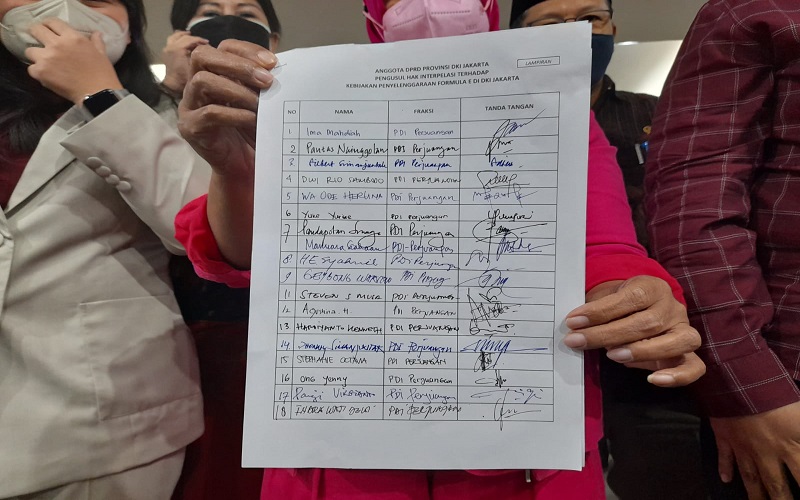 LAMPIRAN
ANGGOTA DPRD PROVINSI DKI JAKARTA
PENGUSUL HAK INTERPELASI TERHADAP
KEBIJAKAN PENYELENGGARAAN FORMULA E DI DKI JAKARTA
NO NAMA FRAKSI TANDA TANGAN
1 Ima Mahdiah PDI Perjuangan
2 Pantas Nainggolan PDI Perjuangan
3 Gilbert Simanjuntak PDI Perjuangan
4 DWI RIO SAMBODO PDI PERJUANGAN
5 WA ODE HERLINA PDI Perjuangan
6 Yuke Yurike PDI Perjuangan
7 Pandapotan Sinaga PDI Perjuangan
Manuara PDI-Perjuangan
8 HE Syahrial PDI Perjuangan
9 GEMBONG WARSONO PDI Perjuang
11 STEVEN S MUSA PDI Perjuangan
12 Agustina H PDI Perjuangan
13 HARDIYANTO KENNETH PDI PERJUANGAN
14 PDI Perjuangan
15 STEPHANIE OCTAVIA PDI PERJUANGAN
16 Ong Yenny PDI Perjuangan
17 Panji Virgianto PDI Perjuangan
18 INDRAWATI DEWI PDI PERJUANGAN